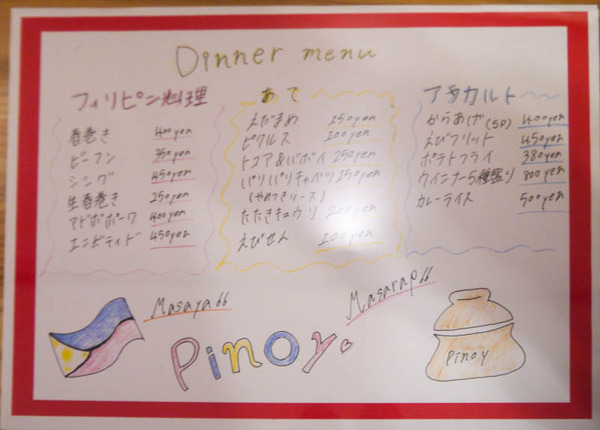 Dinner menu
フィリピン料理
春巻き 400yen
ビーフン 350yen
シシグ 450yen
生春巻き 250yen
アドボポーク 400yen
エンボティド 450yen
あて
えだまめ 150yen
ピクルス 100yen
トコア&バボイ 250yen
パリパリキャベツ 150yen
(やみつきソース)
たたきキュウリ 200yen
えびせん 100yen
アラカルト
からあげ(5P) 400yen
えびフリット 450yen
ポテトフライ 380yen
ウインナー5種盛り 800yen
カレーライス 500yen
Masaya
Masarap
Pinoy
Pinoy